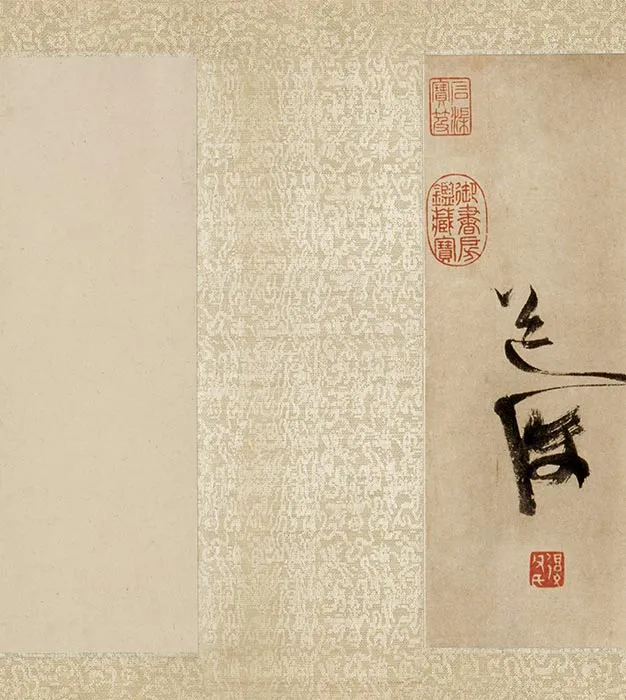 石渠寶笈
御書房鑑藏寶
道復